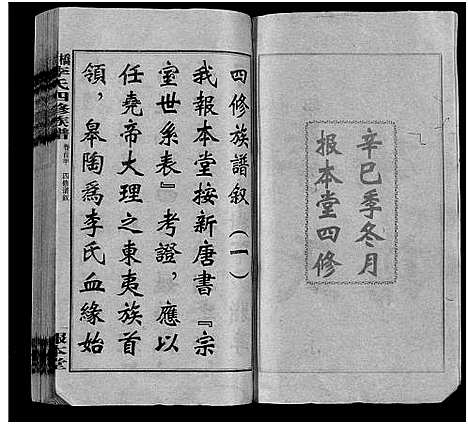 辛巳季冬月
报本堂四修
四修族譜叙（一）
我报本堂按新唐書『宗
室世系表』考證，應以
任堯帝大理之東夷族首
領，皋陶爲李氏血緣始
橋李氏四修族譜
卷首中 四修譜叙
报本堂